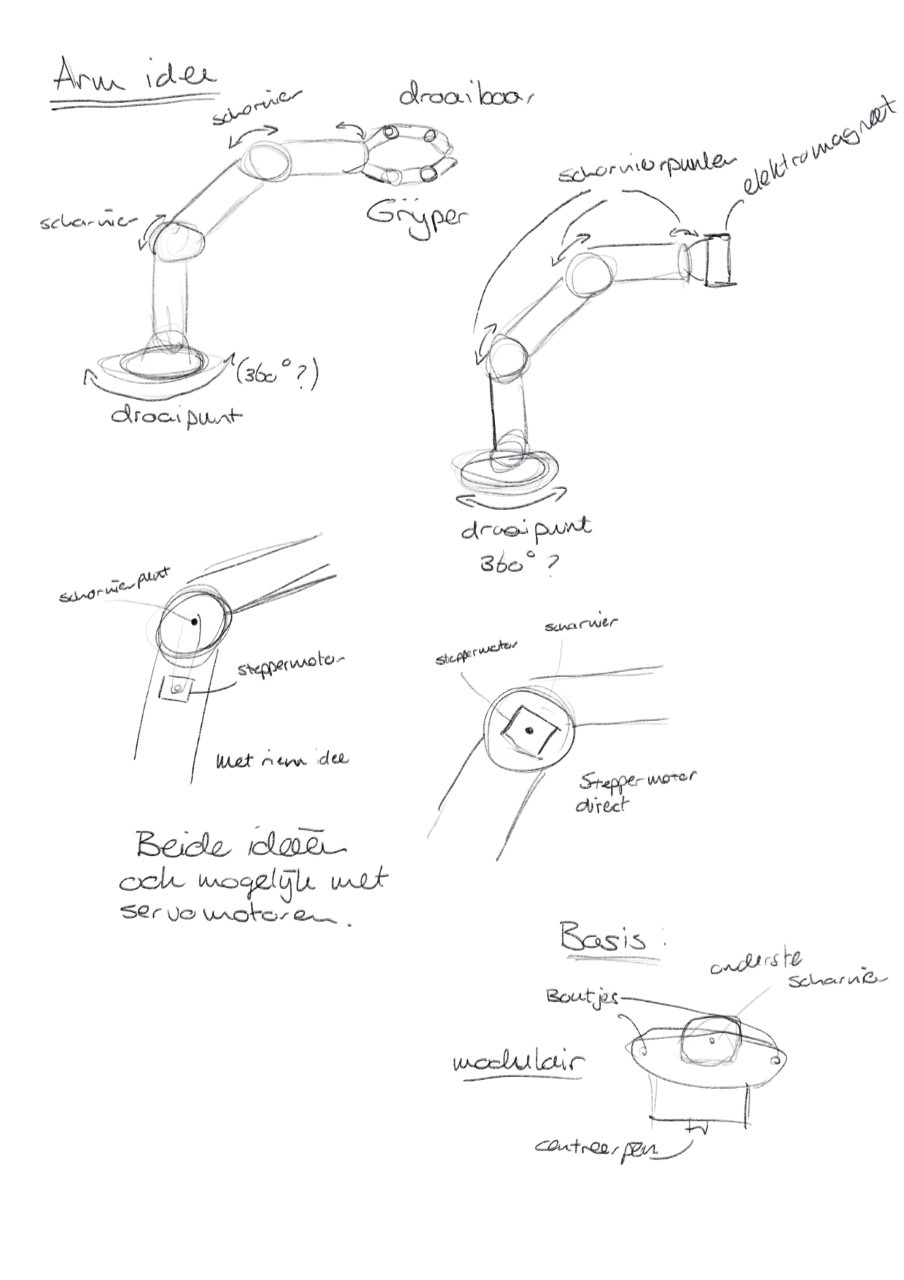 Arm idee
scharnier
draaibaar
scharnier
Grijper
(360° ?)
draaipunt
scharnierpunten
elektromagneet
draaipunt
360° ?
scharnierpunt
steppermotor
met riem idee
steppermotor
scharnier
Steppermotor
direct
Beide ideeën
ook mogelijk met
servomotoren.
Basis :
onderste
scharnier
Boutjes
modulair
centreerpen